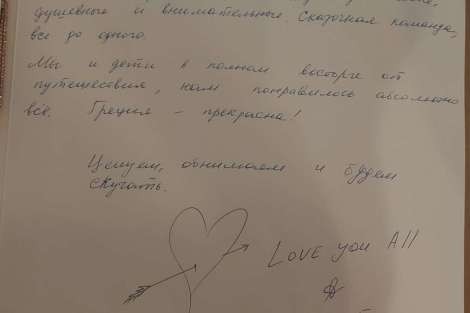 душевного и внимательного. Сказочная команда,
все до одного.
Мы и дети в полном восторге от
путешествия, нам понравилось абсолютно
всё. Греция - прекрасна!
Целуем, обнимаем и будем
скучать.
LOVE YOU All